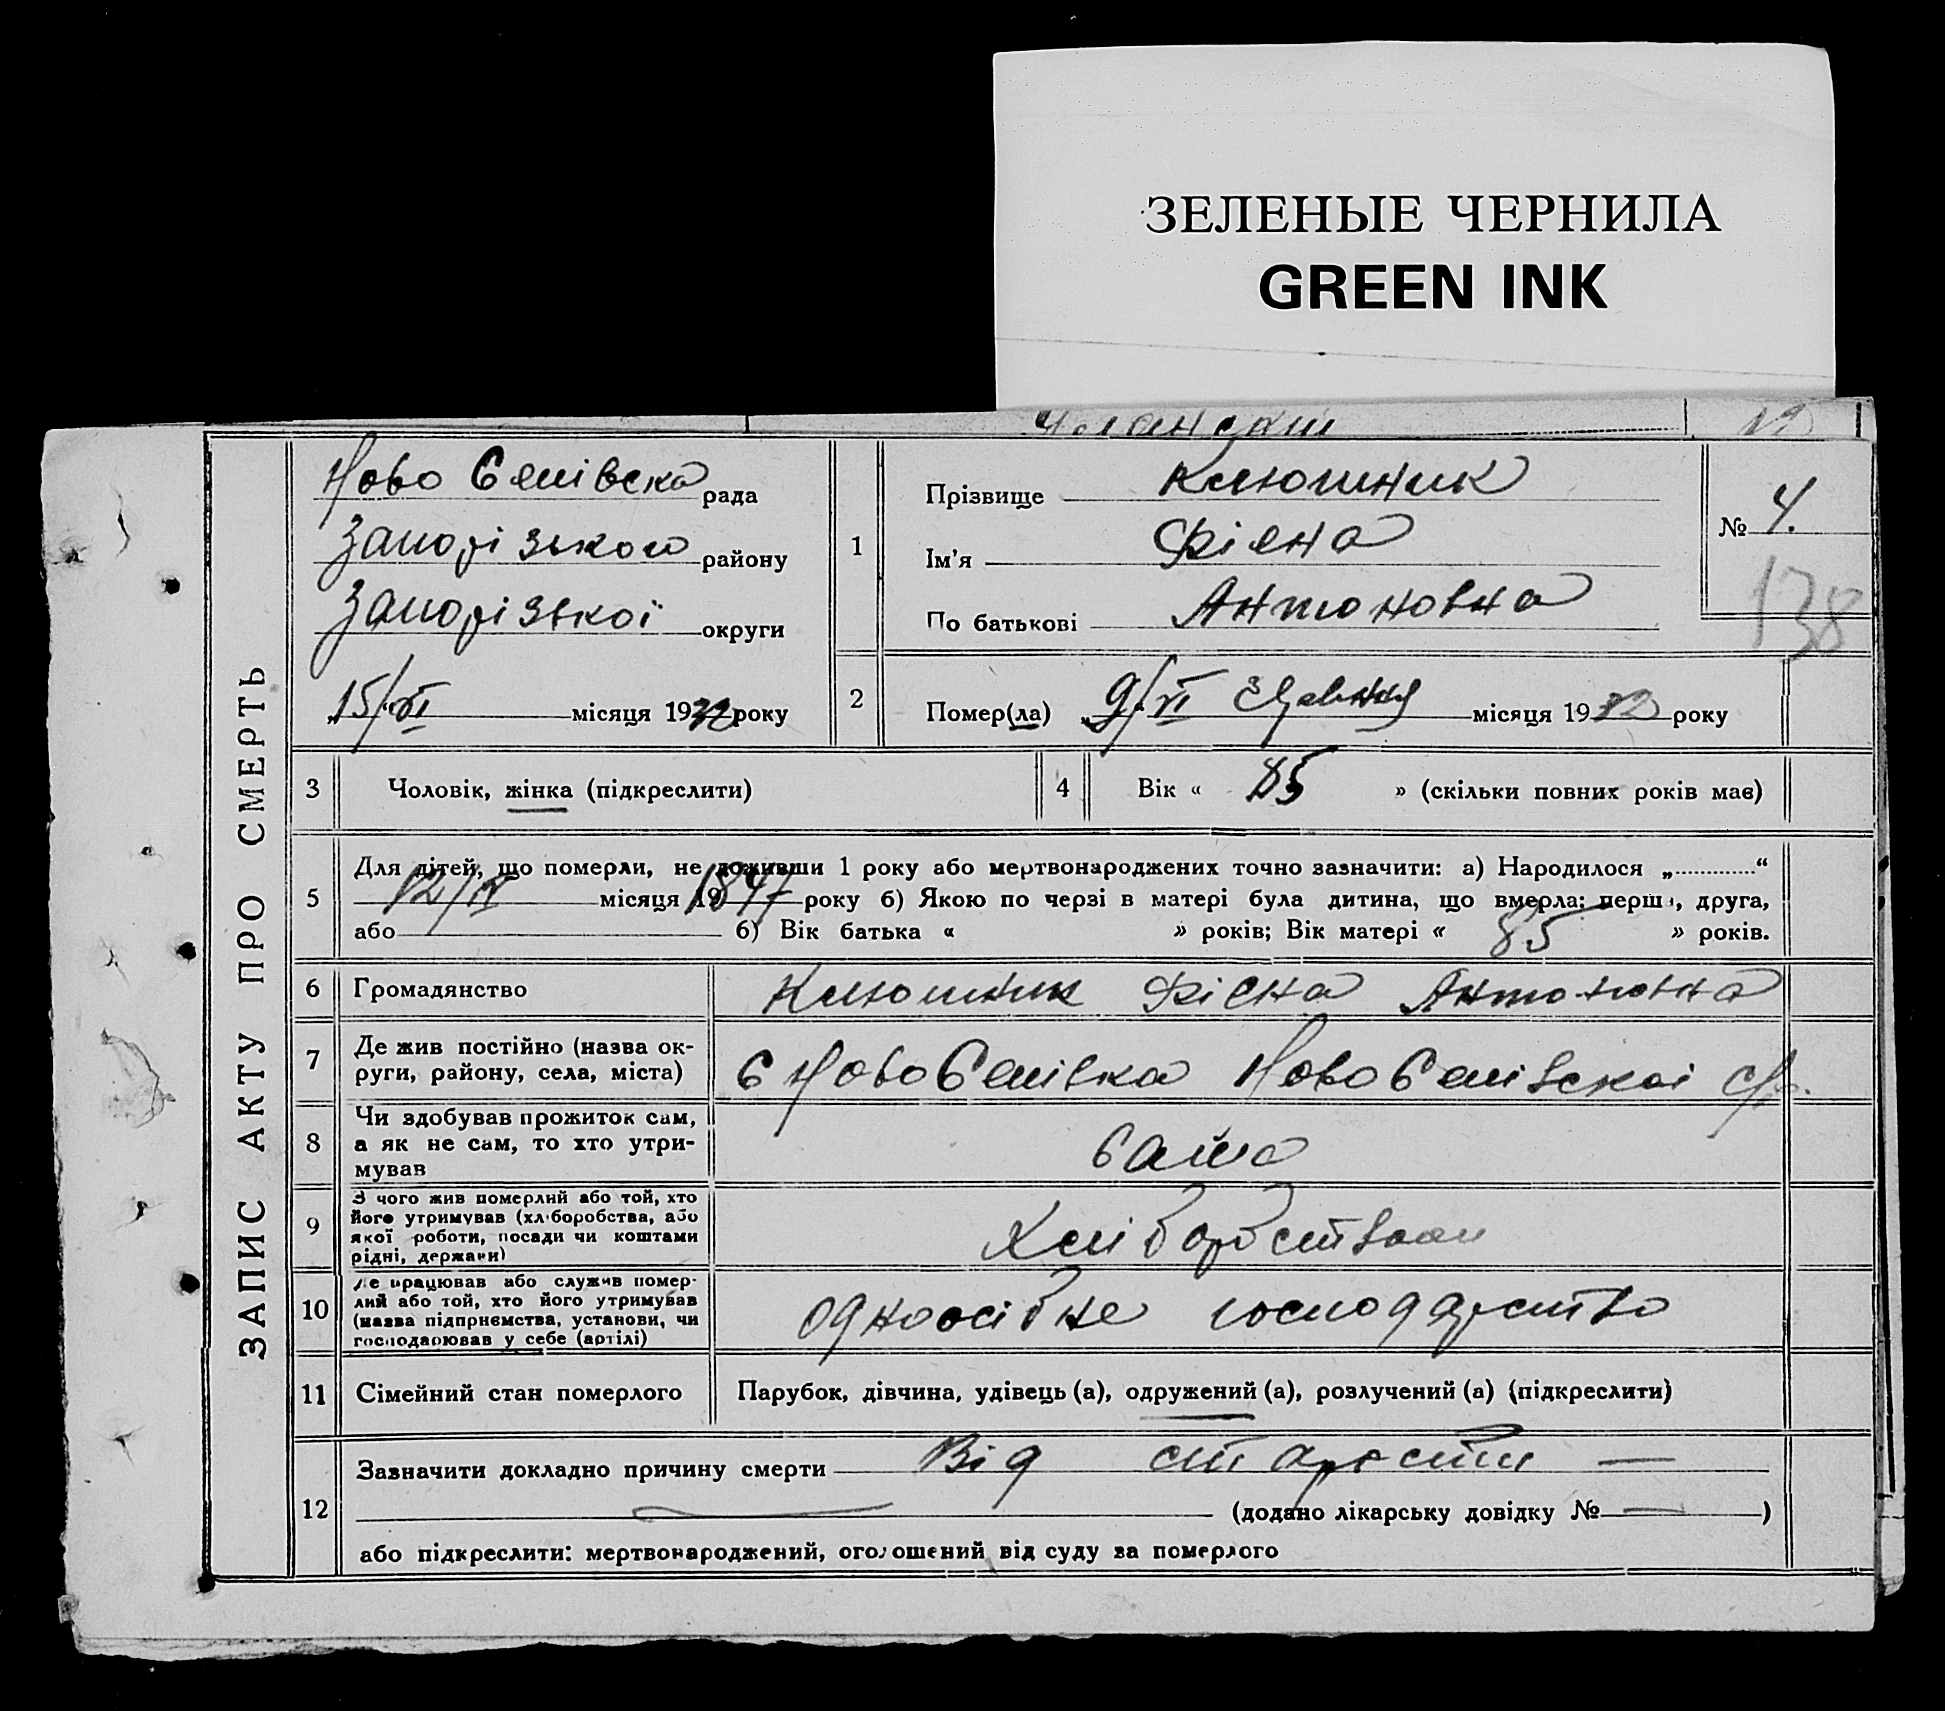 ЗЕЛЕНЫЕ ЧЕРНИЛА
GREEN INK
ЗАПИС АКТУ ПРО СМЕРТЬ
Ново Селівска рада
Запорізького району
Запорізької округи
15/VI місяця 1932 року
1
Прізвище Клюшник
Ім'я Фієна
По батькові Антоновна
№ 4.
138
2
Помер(ла) „9/VI місяця 1932 року
3 Чоловік, жінка (підкреслити)
4 Вік « 85 » (скільки повних років має)
5
Для дітей, що померли, не доживши 1 року або мертвонароджених точно зазначити: а) Народилося „............“
12/IV місяця 19 1847 року б) Якою по черзі в матері була дитина, що вмерла: перша, друга,
або б) Вік батька « » років; Вік матері « 85 » років.
6 Громадянство Клюшник Фієна Антоновна
7 Де жив постійно (назва ок-
руги, району, села, міста)
с НовоСелівка НовоСелівскоі с/р.
8 Чи здобував прожиток сам,
а як не сам, то хто утри-
мував
сама
9 З чого жив померлий або той, хто
його утримував (хліборобства, або
якої роботи, посади чи коштами
рідні, держави)
10 Де працював або служив помер-
лий або той, хто його утримував
(назва підприємства, установи, чи
господарював у себе (артілі)
одноосібне господарство
11 Сімейний стан померлого Парубок, дівчина, удівець (а), одружений (а), розлучений (а) (підкреслити)
12
Зазначити докладно причину смерти Від старости —
(додано лікарську довідку № — )
або підкреслити: мертвонароджений, оголошений від суду за померлого